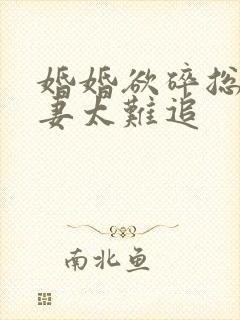 婚婚欲碎总
妻太難追
南北鱼